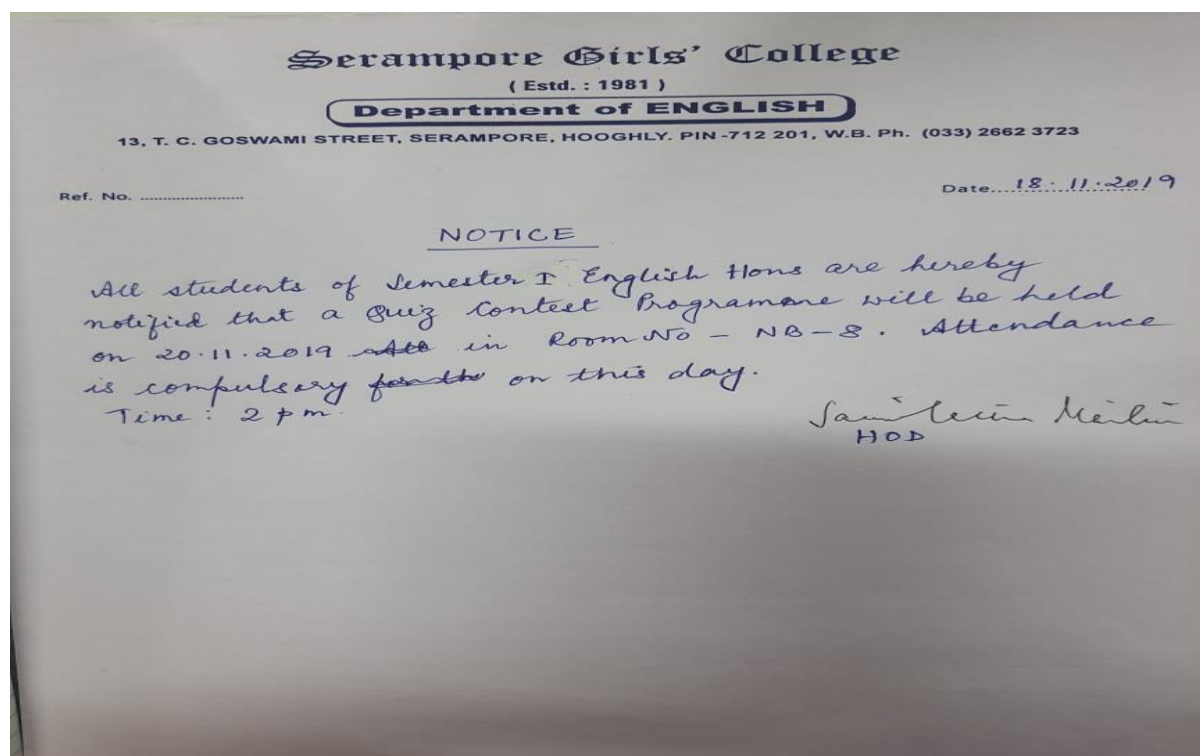 Serampore Girls' College
( Estd. : 1981 )
Department of ENGLISH
13, T. C. GOSWAMI STREET, SERAMPORE, HOOGHLY. PIN -712 201, W.B. Ph. (033) 2662 3723
Ref. No. ........................ Date....18.11.2019
NOTICE
All students of Semester I English Hons are hereby
notified that a Quiz Contest Programme will be held
on 20.11.2019 in Room No - NB-8. Attendance
is compulsary on this day.
Time : 2 pm.
HOD